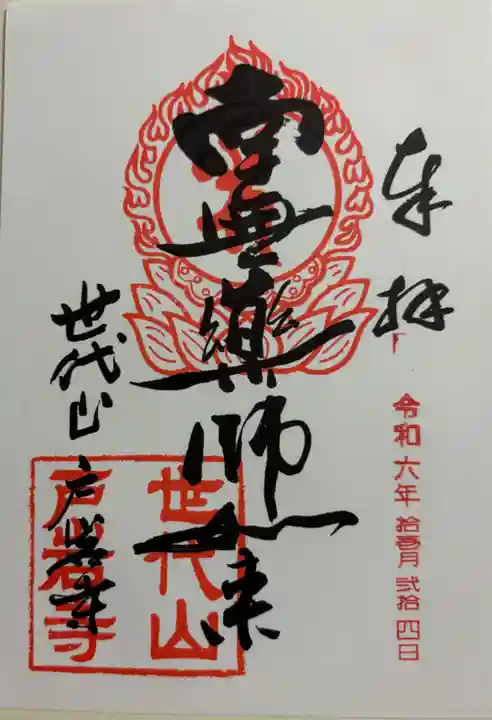 奉拝
令和六年 拾壱月 弐拾四日
薬師如来
世代山
戸岩寺
世代山
戸岩寺